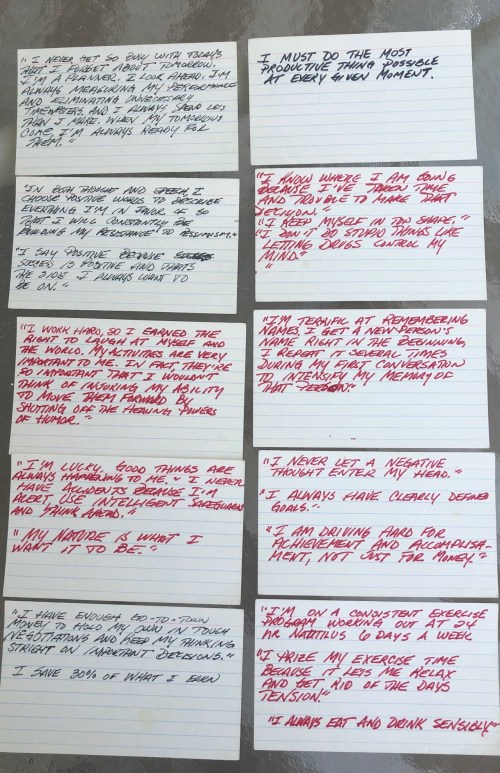 "I NEVER GET SO BUSY WITH TODAYS
THAT I FORGET ABOUT TOMORROW.
I'M A PLANNER. I LOOK AHEAD. I'M
ALWAYS MEASURING MY PERFORMANCE
AND ELIMINATING UNNECESSARY
TIMEWASTERS. AND I ALWAYS SPEND LESS
THAN I MAKE. WHEN MY TOMORROWS
COME, I'M ALWAYS READY FOR
THEM."
I MUST DO THE MOST
PRODUCTIVE THING POSSIBLE
AT EVERY GIVEN MOMENT.
"IN BOTH THOUGHT AND SPEECH, I
CHOOSE POSITIVE WORDS TO DESCRIBE
EVERYTHING I'M IN FAVOR OF SO
THAT I WILL CONSTANTLY BE
BUILDING MY RESISTANCE TO PESSIMISM."
"I SAY POSITIVE BECAUSE
SUCCESS IS POSITIVE AND THATS
THE SIDE I ALWAYS WANT TO
BE ON."
"I KNOW WHERE I AM GOING
BECAUSE I'VE TAKEN TIME
AND TROUBLE TO MAKE THAT
DECISION."
"I KEEP MYSELF IN TOP SHAPE."
"I DON'T DO STUPID THINGS LIKE
LETTING DRUGS CONTROL MY
MIND."
"
"I WORK HARD, SO I EARNED THE
RIGHT TO LAUGH AT MYSELF AND
THE WORLD. MY ACTIVITIES ARE VERY
IMPORTANT TO ME. IN FACT, THEY'RE
SO IMPORTANT THAT I WOULDN'T
THINK OF INJURING MY ABILITY
TO MOVE THEM FORWARD BY
SHUTTING OFF THE HEALING POWERS
OF HUMOR."
"I'M TERRIFIC AT REMEMBERING
NAMES I GET A NEW PERSON'S
NAME RIGHT IN THE BEGINNING
I REPEAT IT SEVERAL TIMES
DURING MY FIRST CONVERSATION
TO INTENSIFY MY MEMORY OF
THAT PERSON."
"I'M LUCKY. GOOD THINGS ARE
ALWAYS HAPPENING TO ME." I NEVER
HAVE ACCIDENTS BECAUSE I'M
ALERT, USE INTELLIGENT SAFEGUARDS
AND THINK AHEAD."
"MY NATURE IS WHAT I
WANT IT TO BE."
"I NEVER LET A NEGATIVE
THOUGHT ENTER MY HEAD."
"I ALWAYS HAVE CLEARLY DEFINED
GOALS."
"I AM DRIVING HARD FOR
ACHIEVEMENT AND ACCOMPLISH-
MENT, NOT JUST FOR MONEY."
"I HAVE ENOUGH GO-TO-TOWN
MOXEY TO HOLD MY OWN IN TOUGH
NEGOTIATIONS AND KEEP MY THINKING
STRIGHT ON IMPORTANT DECISIONS."
I SAVE 30% OF WHAT I EARN
"I'M ON A CONSISTENT EXERCISE
PROGRAM WORKING OUT AT 24
HR NAUTILUS 6 DAYS A WEEK
"I PRIZE MY EXERCISE TIME
BECAUSE IT LETS ME RELAX
AND GET RID OF THE DAYS
TENSION."
"I ALWAYS EAT AND DRINK SENSIBLY"